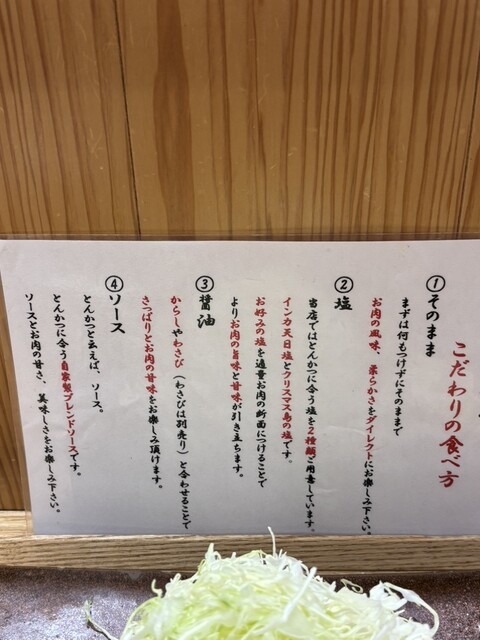 こだわりの食べ方
①そのまま
まずは何もつけずにそのままで
お肉の風味、柔らかさをダイレクトにお楽しみ下さい。
②塩
当店ではとんかつに合う塩を2種類ご用意しています。
インカ天日塩とクリスマス島の塩です。
お好みの塩を適量お肉の断面につけることで
よりお肉の旨味と甘味が引き立ちます。
③醤油
からしやわさび（わさびは別売り）と合わせることで
さっぱりとお肉の甘味をお楽しみ頂けます。
④ソース
とんかつと云えば、ソース。
とんかつに合う自家製ブレンドソースです。
ソースとお肉の甘さ、美味しさをお楽しみ下さい。